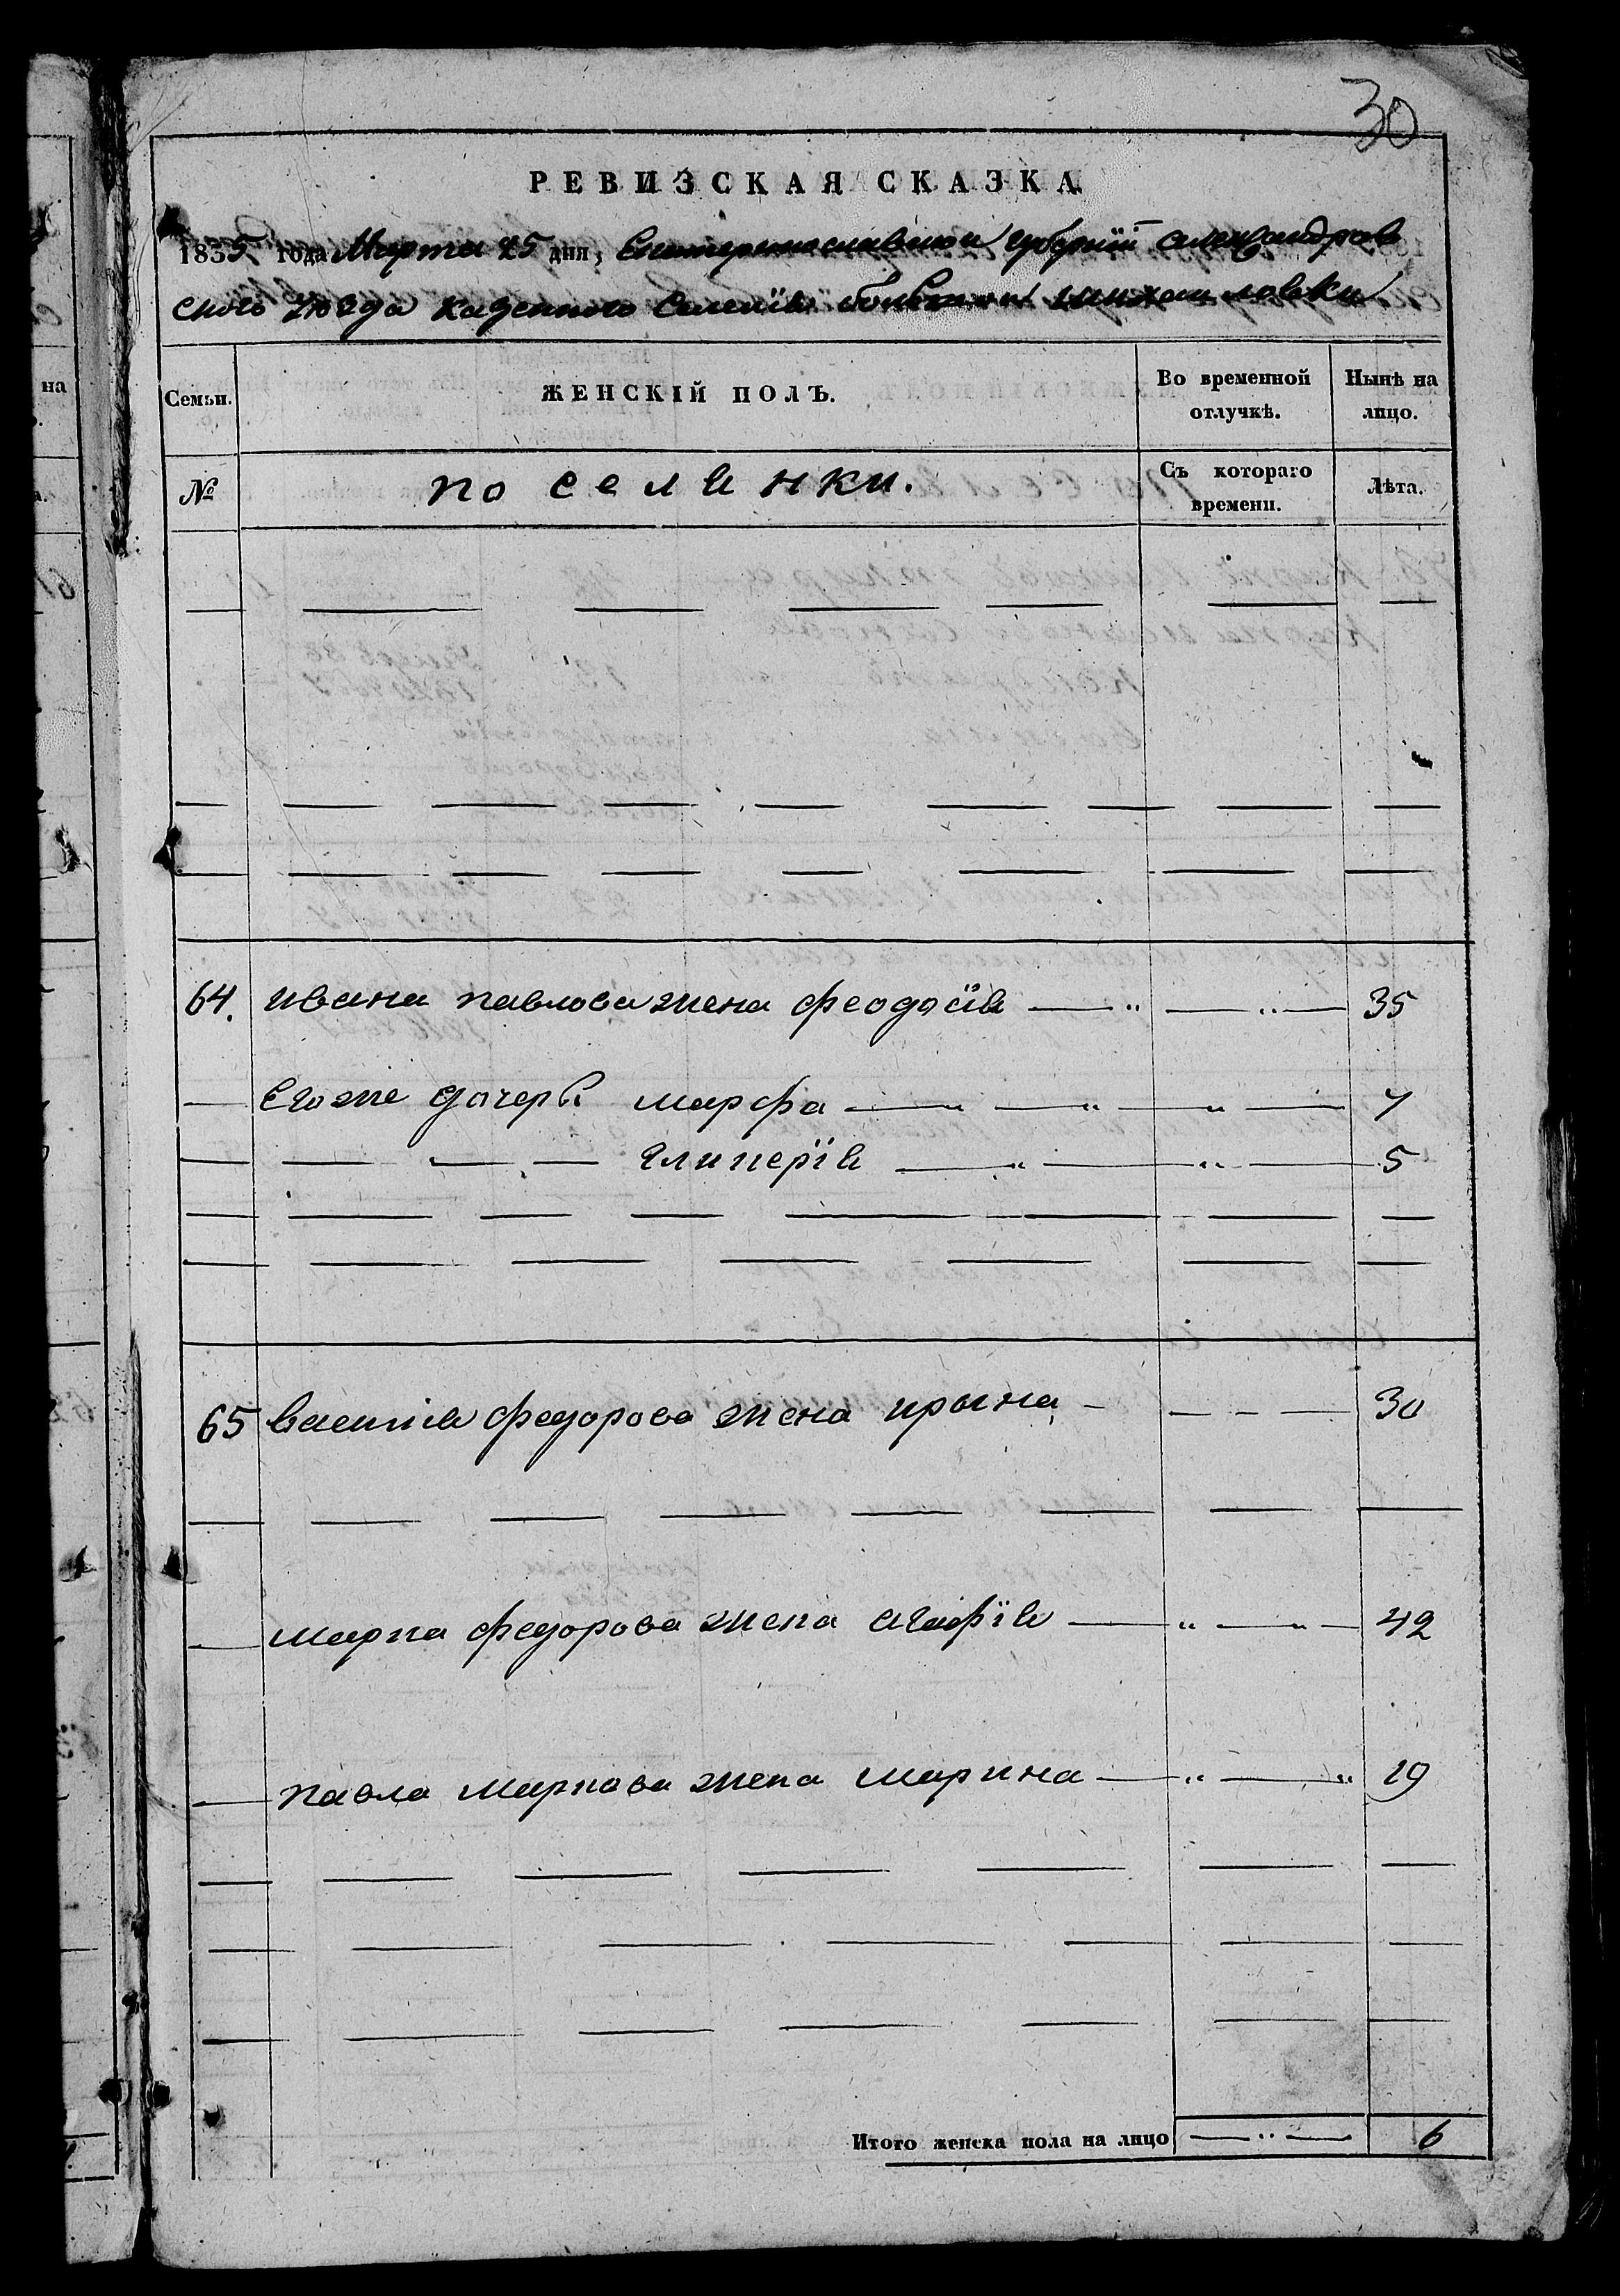 30
РЕВИЗСКАЯ СКАЗКА
1835 года Марта 25 дня, Екатеринославской губернiи Александров
ского уезда казенного Селенiя Михайловки
Семьи. ЖЕНСКІЙ ПОЛЪ. Во временной отлучкѣ. Нынѣ на лицо.
№ поселянки. Съ котораго времени. Лѣта.
64. ивана павлова жена феодосiя 35
Его же дочери марфа 7
гликерiя 5
65 василiя федорова жена ирына 30
марка федорова жена агафiя 42
павла маркова жена марина 19
Итого женска пола на лицо 6
на
61